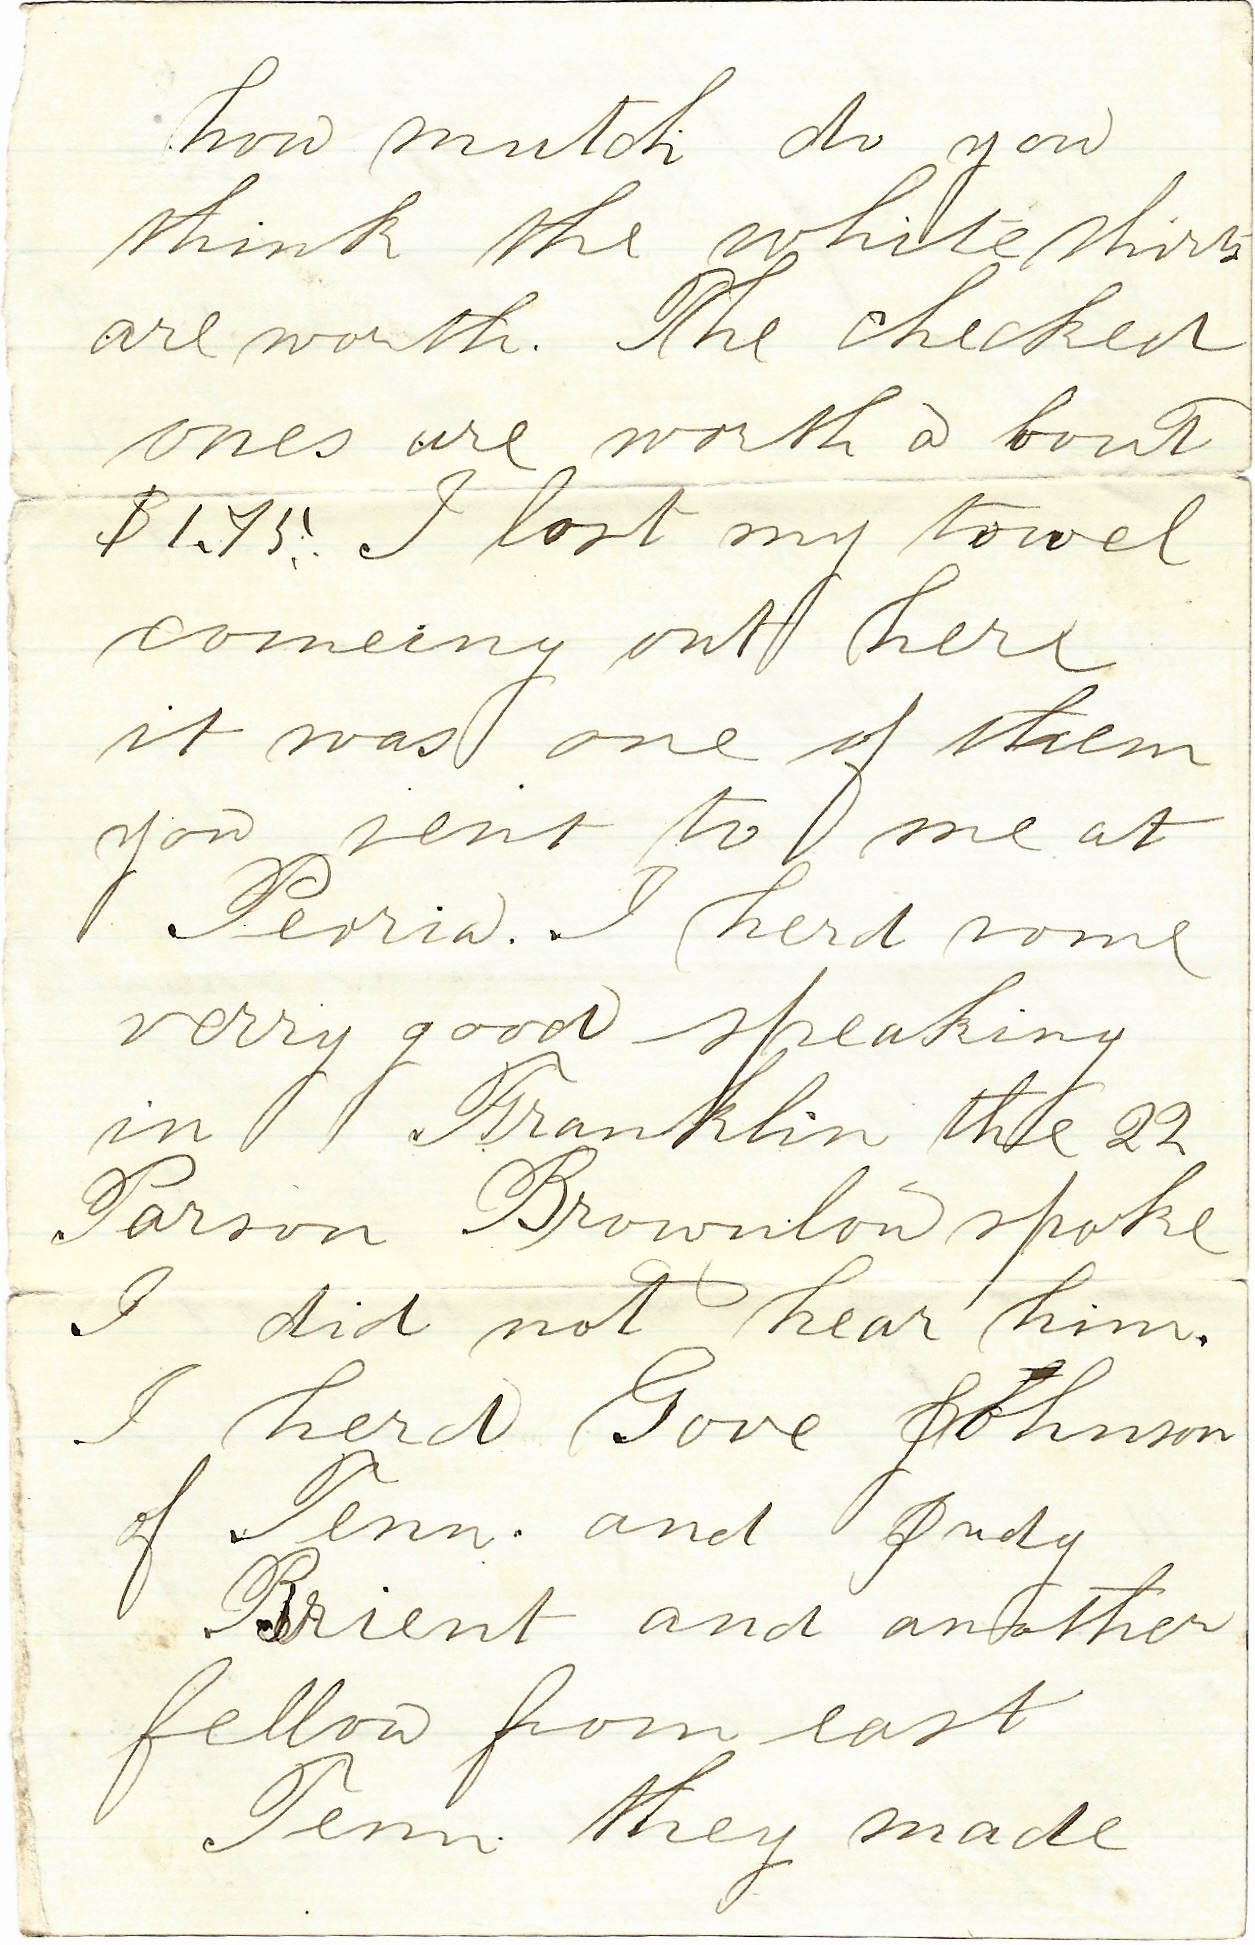 how mutch do you
think the white shirts
are worth. The checked
ones are worth a bout
$1.75. I lost my towel
comeing out here
it was one of them
you sent to me at
Peoria. I herd some
verry good speaking
in Franklin the 22
Parson Brownlow spoke
I did not hear him.
I herd Gove Johnson
of Tenn. and Judg
Brient and another
fellow from east
Tenn. they made